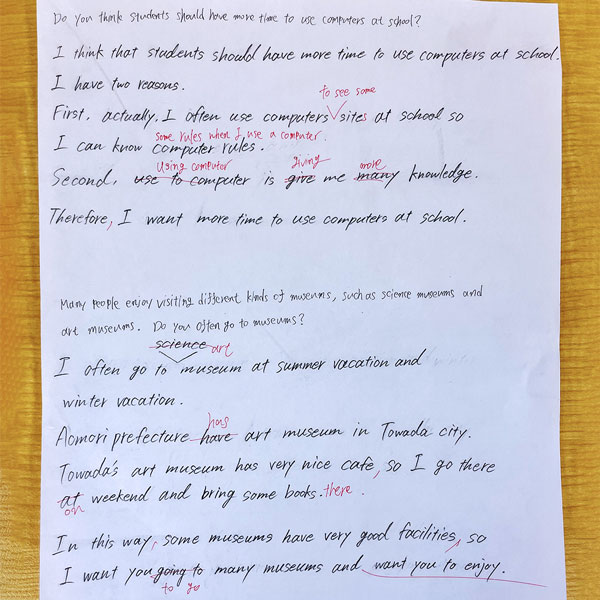 Do you think students should have more time to use computers at school?
I think that students should have more time to use computers at school.
I have two reasons.
to see some
First, actually, I often use computers sites at school so
some rules when I use a computer.
I can know computer rules.
using computer giving more
Second, use to computer is give me many knowledge.
Therefore, I want more time to use computers at school.
Many people enjoy visiting different kinds of museums, such as science museums and
art museums. Do you often go to museums?
science art
I often go to museum at summer vacation and
winter vacation.
has
Aomori prefecture have art museum in Towada city.
Towada's art museum has very nice cafe, so I go there
at weekend and bring some books. there.
on
In this way, some museums have very good facilities, so
I want you going to many museums and want you to enjoy.
to go